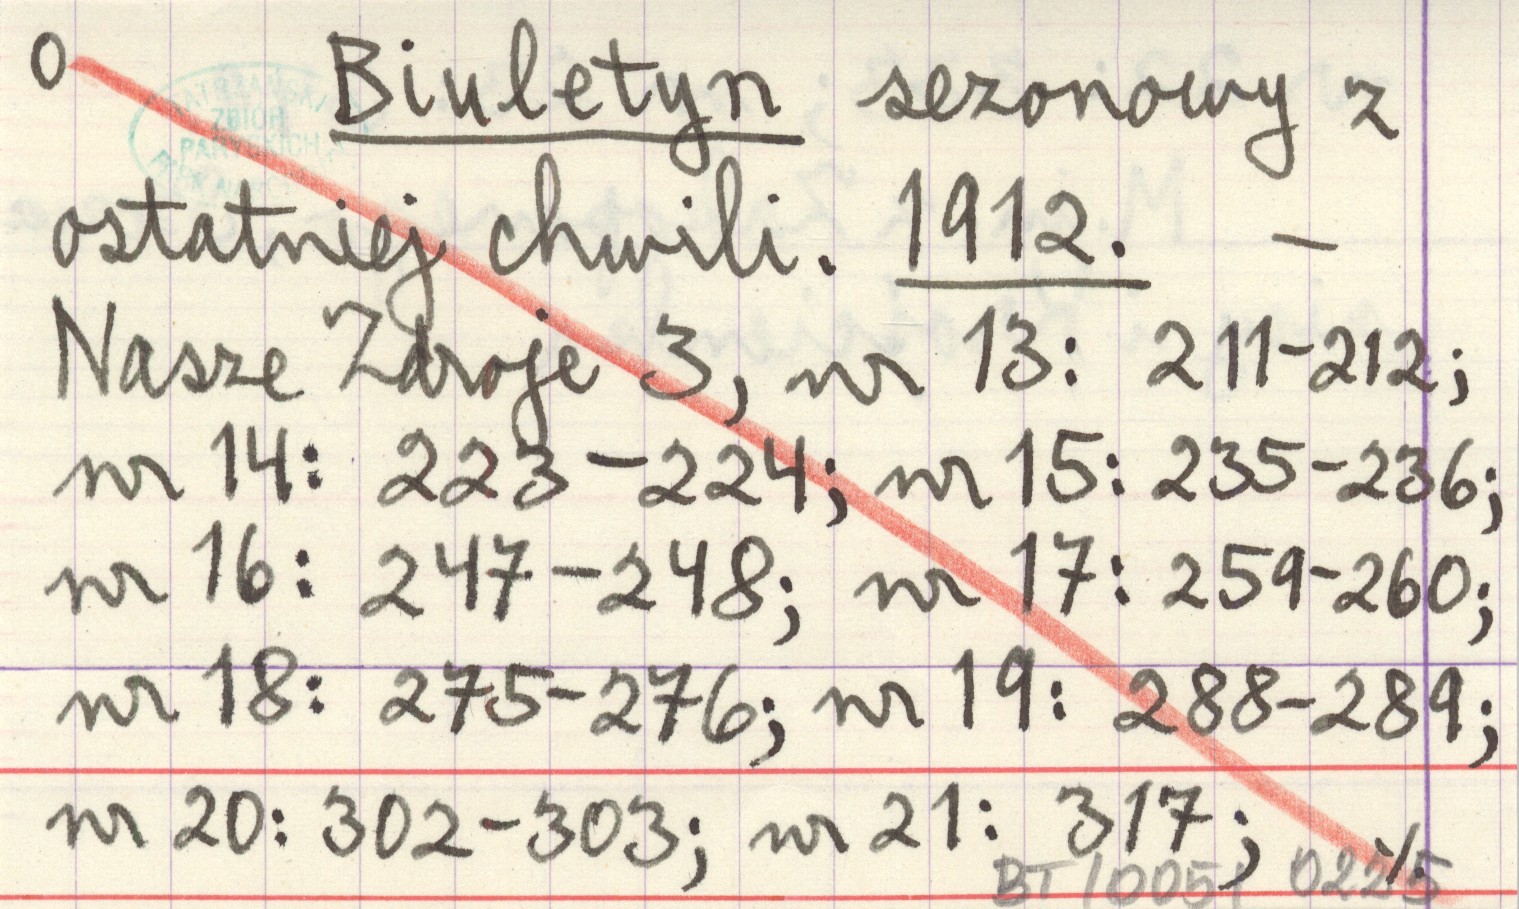 0 Biuletyn sezonowy z
ostatniej chwili. 1912. –
Nasze Zdroje 3, nr 13: 211-212;
nr 14: 223-224; nr 15: 235-236;
nr 16: 247-248; nr 17: 259-260;
nr 18: 275-276; nr 19: 288-289;
nr 20: 302-303; nr 21: 317; ·/.
BT/005/ 0225